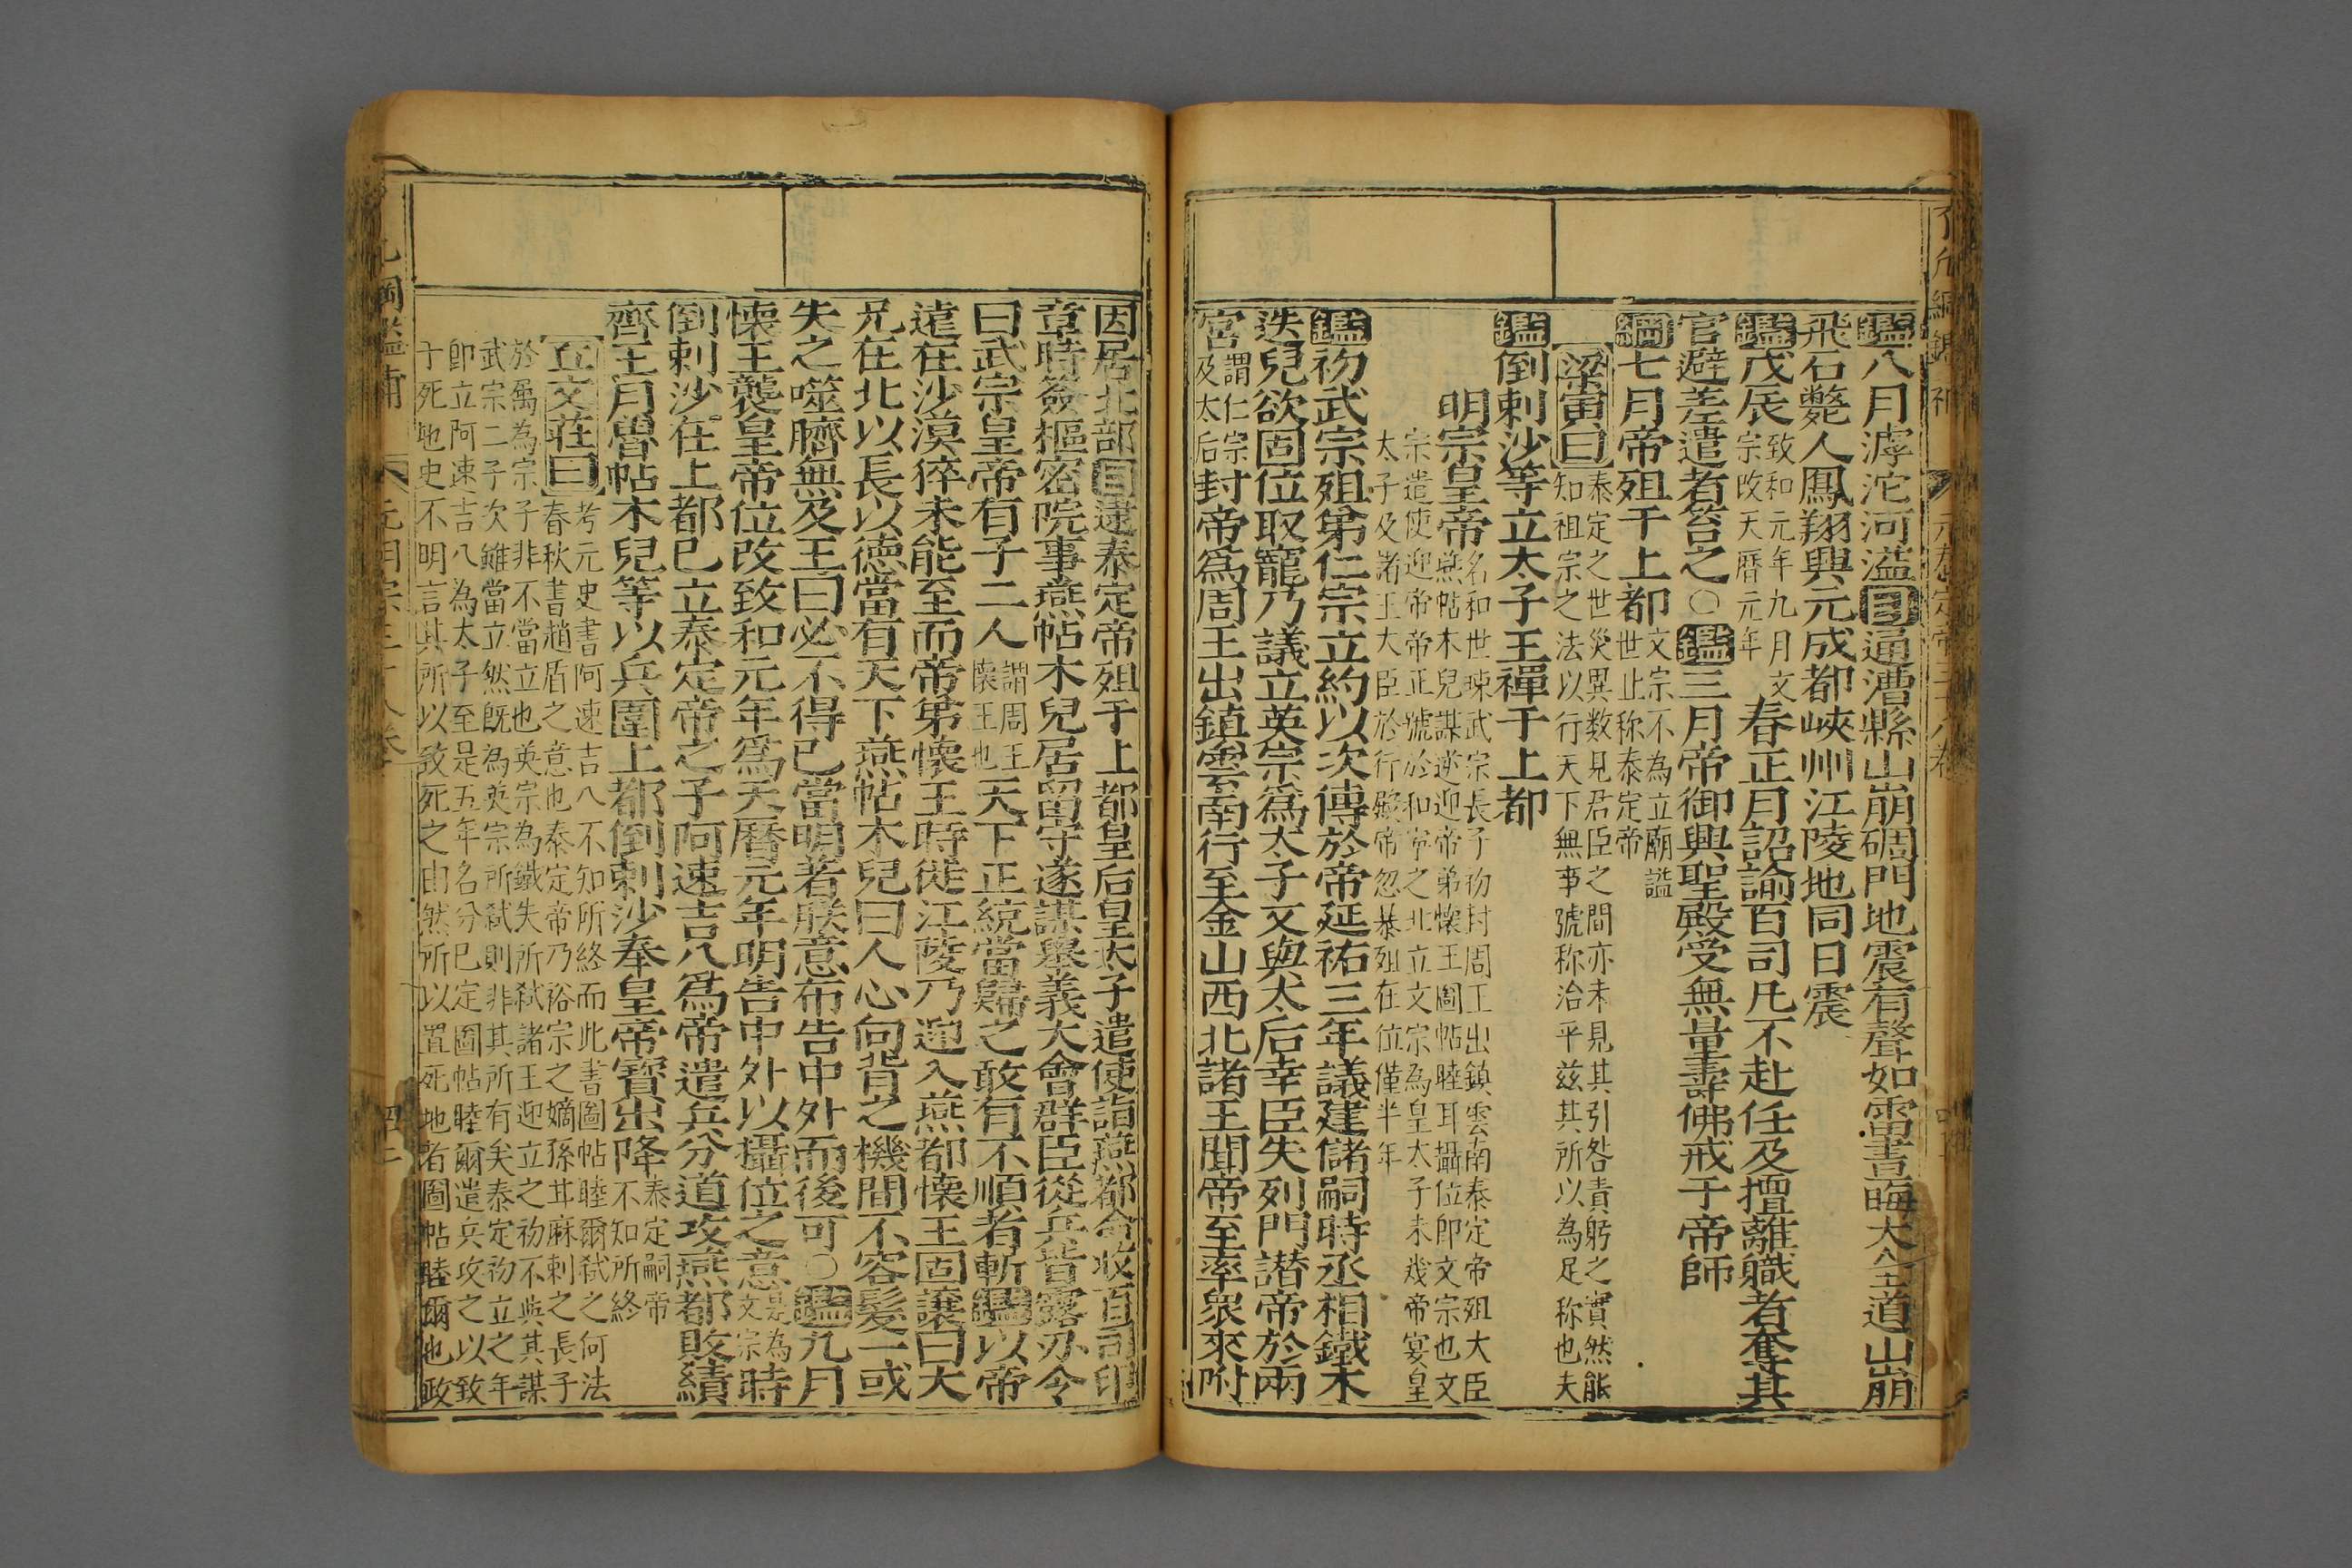 鑑八月滹沱河溢目通漕縣山崩碉門地震有聲如雷晝晦大全道山崩
飛石斃人鳳翔興元成都峽州江陵地同日震
鑑戊辰致和元年九月文宗改天曆元年春正月詔諭百司凡不赴任及擅離職者奪其
官避差遣者笞之○鑑三月帝御興聖殿受無量壽佛戒于帝師
綱七月帝殂于上都文宗不為立廟謚世止称泰定帝
梁寅曰泰定之世災異数見君臣之間亦未見其引咎責躬之實然能
知祖宗之法以行天下無事號称治平兹其所以為足称也夫
鑑倒剌沙等立太子王禪于上都
明宗皇帝名和世㻋武宗長子初封周王出鎮雲南泰定帝殂大臣
燕帖木兒謀逆迎帝弟懷王圖帖睦耳攝位即文宗也文
宗遣使迎帝帝正號於和寧之北立文宗為皇太子未幾帝宴皇
太子及諸王大臣於行殿帝忽暴殂在位僅半年
鑑初武宗殂弟仁宗立約以次傳於帝延祐三年議建儲嗣時丞相鐵木
迭兒欲固位取寵乃議立英宗爲太子又與太后幸臣失列門譖帝於兩
宮謂仁宗及太后封帝爲周王出鎮雲南行至金山西北諸王聞帝至率衆來附
因居北部目逮泰定帝殂于上都皇后皇太子遣使詣燕都命收百司印
章時簽樞密院事燕帖木兒居留守遂謀舉義大會群臣從兵皆露刃令
曰武宗皇帝有子二人謂周王懷王也天下正統當歸之敢有不順者斬鑑以帝
遠在沙漠猝未能至而帝弟懷王時徙江陵乃迎入燕都懷王固讓曰大
兄在北以長以德當有天下燕帖木兒曰人心向背之機間不容髮一或
失之噬臍無及王曰必不得已當明著朕意布告中外而後可○鑑九月
懷王襲皇帝位改致和元年爲天曆元年明告中外以攝位之意是為文宗時
倒剌沙在上都已立泰定帝之子阿速吉八爲帝遣兵分道攻燕都敗績
齊王月魯帖木兒等以兵圍上都倒剌沙奉皇帝寶出降泰定嗣帝不知所終
丘文莊曰考元史書阿速吉八不知所終而此書圖帖睦爾弒之何法
春秋書趙盾之意也泰定帝乃裕宗之嫡孫甘麻剌之長子
於属為宗子非不當立也英宗為鐵失所弒諸王迎立之初不與其謀
武宗二子次雖當立然既為英宗所弒則非其所有矣泰定初立之年
即立阿速吉八為太子至是五年名分已定圖帖睦爾遣兵攻之以致
于死地史不明言其所以致死之由然所以置死地者圖帖睦爾也政